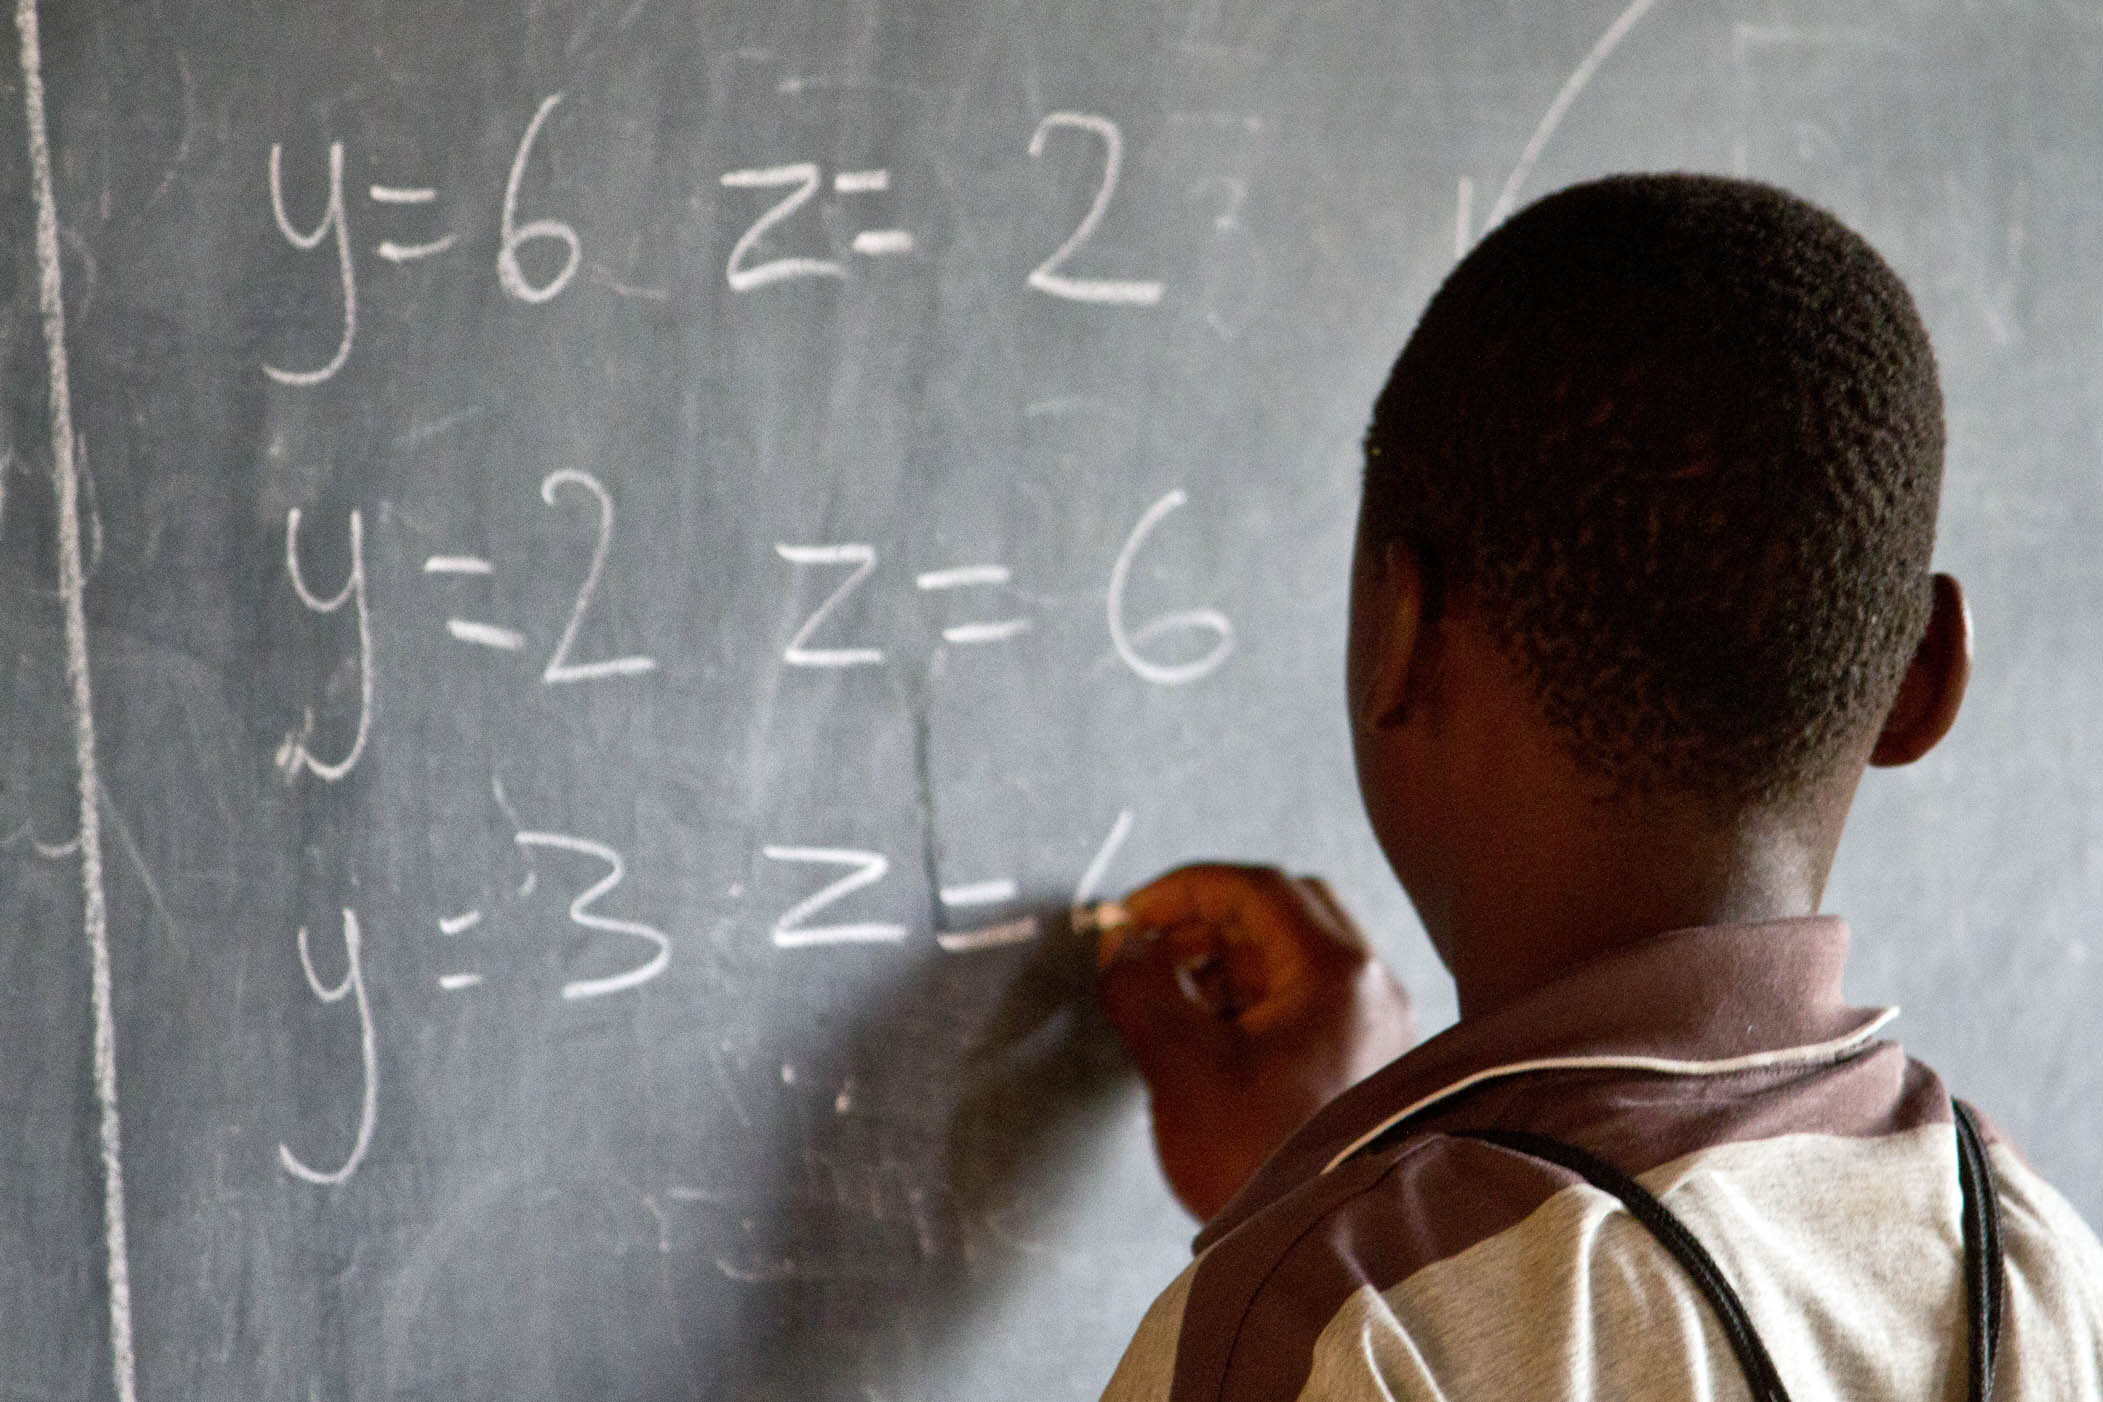 y=6 z=2
y=2 z=6
y=3 z=